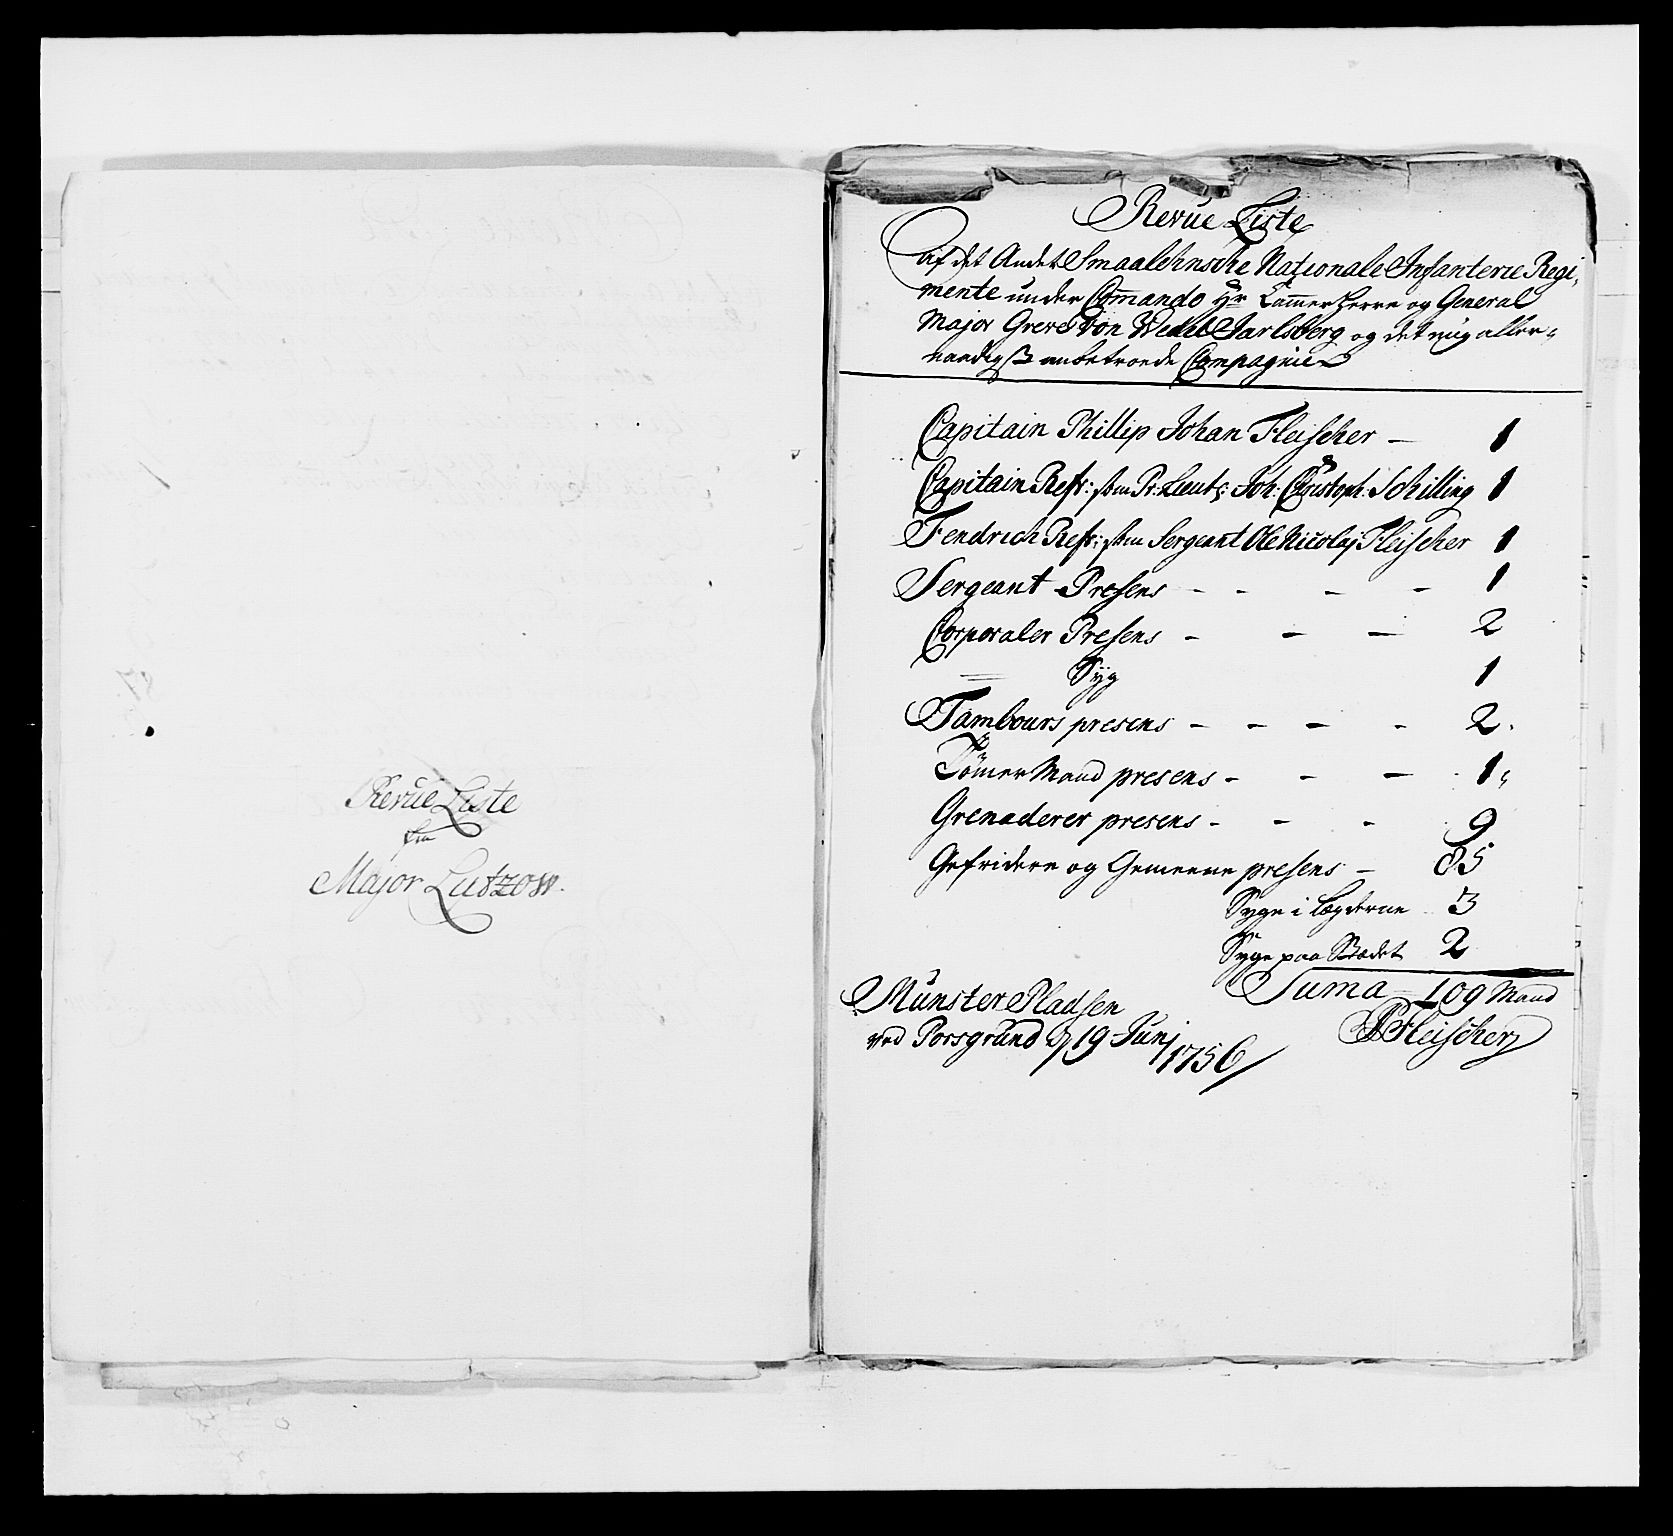 Revue Liste
fra
Major Lutzow.
Revue Liste
af det Andet Smaalehnsche Nationale Infanterie Regi-
mente under Commando Hr Cammerherre og General
Major Greve Von Wedel Jarlsberg og det mig aller-
naadigst anbetroede Compagnie
Capitain Phillip Johan Fleischer — 1
Capitain Refr: som Pr: Lieut: Joh: Christoph: Schilling 1
Fendrich Refr: som Sergeant Ole Nicolaj Fleischer 1
Sergeant Presens - - - - 1
Corporaler Presens - - - 2
= Syg 1
Tambours presens - - - - 2.
Tømer Mand presens - - - 1
Grenaderer presens - - - 9
Gefridere og Gemeene presens - 85
Syge i Lægderne 3
Syge paa Stædet 2
Suma 109 Mand
Munster Pladsen
ved Porsgrund d 19 Junj
1756
PJFleischer